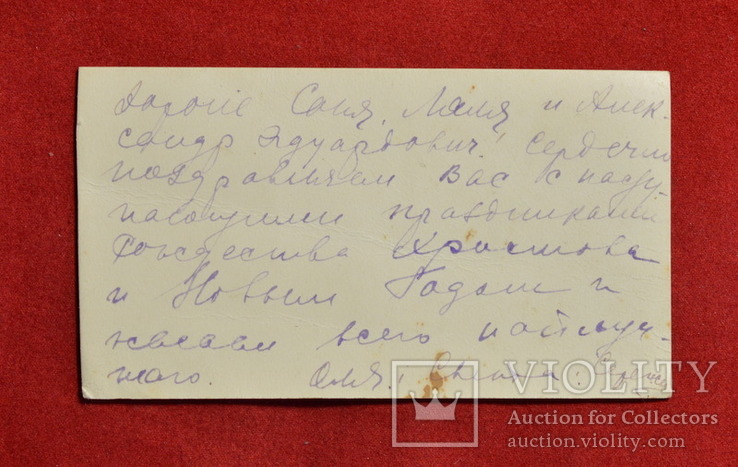 дорогие Соня, Ляля и Алек-
сандр Эдуардович! Сердечно
поздравляем Вас с насту-
пающими праздниками
Рождества Христова
и Новым Годом и
желаем всего найлуч-
шого. Оля,
VIOLITY
Auction for Collectors
auction.violity.com